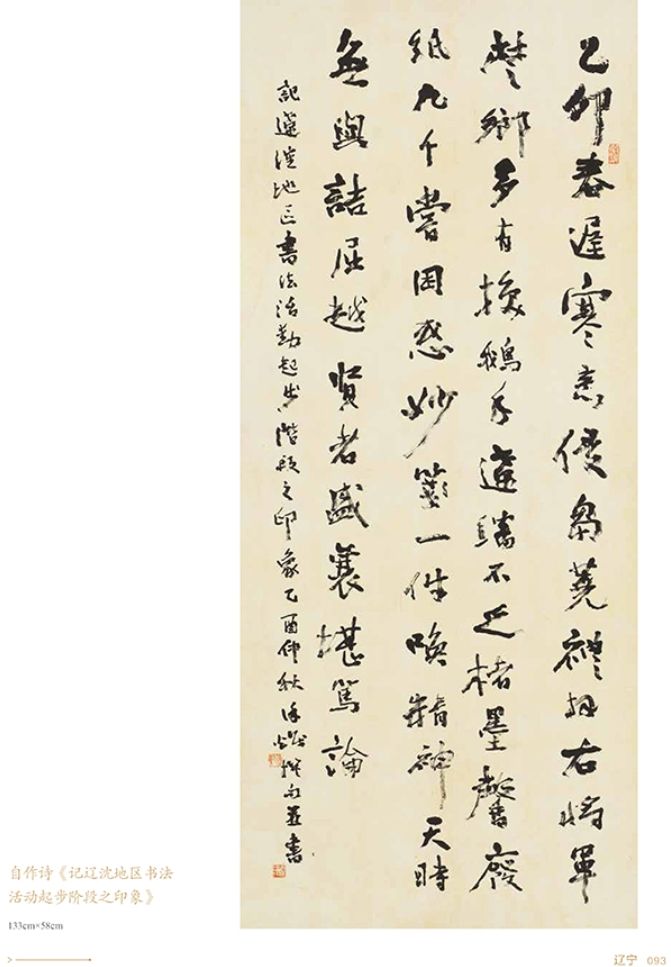 乙卯春遲寒意侵芻蕘禮拜右將軍
楚鄉多有換鵝手遼不乏楮墨馨廢
紙九千嘗困惑妙一件喚精神天時
無與詰屈越賢者盛襄堪篤論
記遼瀋地区書法活動起步階段之印象乙酉仲秋徐熾撰句並書
自作诗《记辽沈地区书法
活动起步阶段之印象》
133cm×58cm
辽宁 093